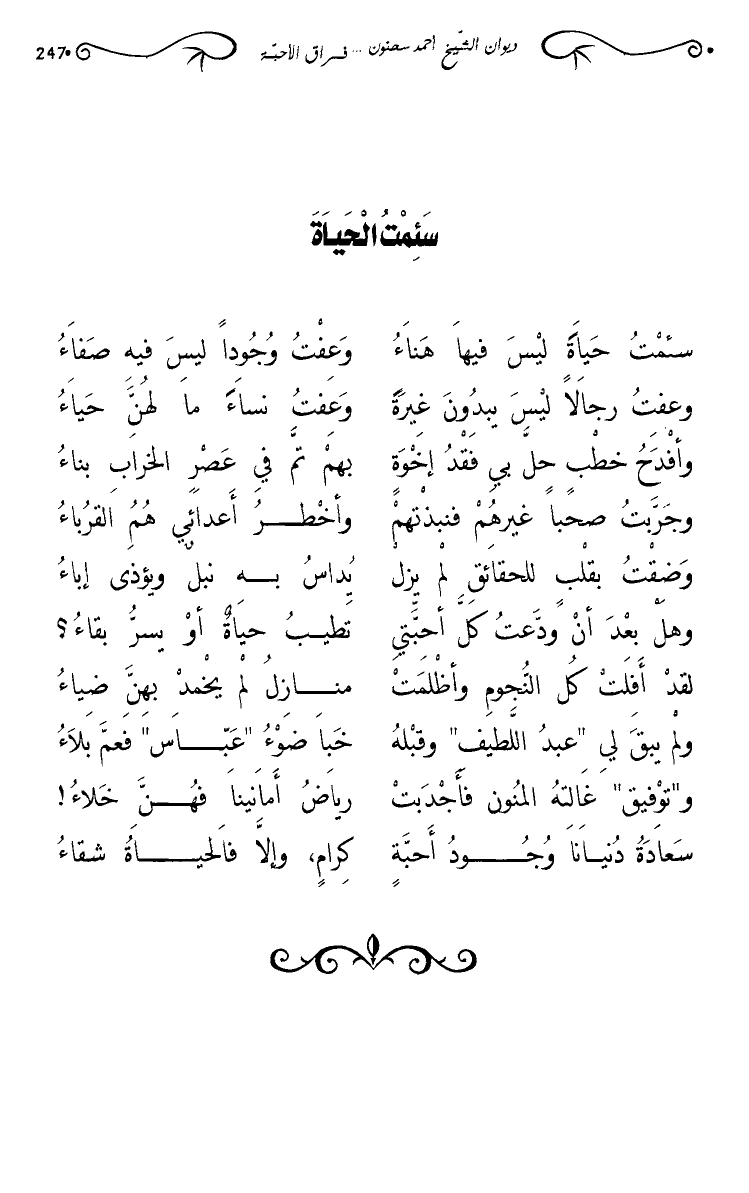 ديوان الشّيخ احمد سحنون ... فراق الأحبّة 247
سَئِمْتُ الْحَيَاةَ
سئمْتُ حَياةً ليْسَ فيها هَناءُ وَعفْتُ وُجُوداً ليسَ فيه صَفاءُ
وعفتُ رجالاً ليْسَ يبدُونَ غيرَةً وَعفتُ نساءً ما لهُنَّ حَياءُ
وأفْدَحُ خطْبٍ حلَّ بي فقْدُ إخْوَةٍ بهمْ تمَّ في عَصْرِ الخرابِ بناءُ
وجَرَّبتُ صحْباً غيرهُمْ فنبذْتهمْ وأخْطــرُ أعدائِي هُمُ القرَباءُ
وَضقْتُ بقلْبٍ للحقائقِ لمْ يزلْ يُداسُ بــه نبل ويؤذى إباءُ
وهلْ بعْدَ أنْ ودَّعتُ كلَّ أحبَّتي تطيبُ حياةٌ أوْ يسرُّ بقاءُ؟
لقدْ أفَلتْ كُل النُّجومِ وأظْلمَتْ منــازلُ لمْ يخْمدْ بهنَّ ضياءُ
ولمْ يبقَ لي "عبدُ اللَّطيف" وقبْلهُ خَبا ضوْءُ "عَبّــاس" فعمَّ بلاَءُ
و"توْفيق" غالتهُ المنُون فأجْدَبتْ رياضُ أمانينا فهُــنَّ خَلاءُ!
سَعادَةُ دُنيــانا وُجُــودُ أحبَّةٍ كِرامٍ، وإلاَّ فالحيــاةُ شقاءُ